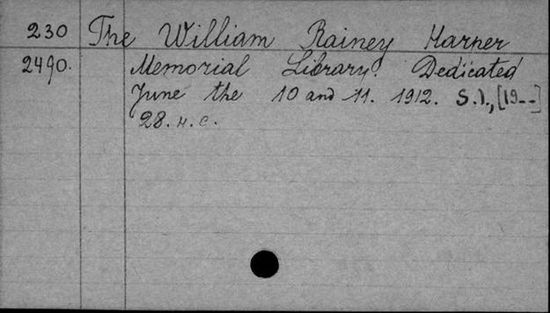 230 The William Rainey Harper
2490. Memorial Library. Dedicated
June the 10 and 11. 1912. S.l., [19--]
28. н.с.